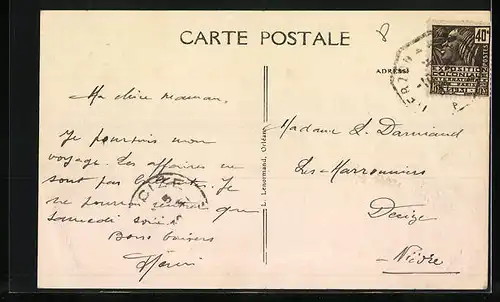 CARTE POSTALE
8
ADRESSE
40c
EXPOSITION
COLONIALE
POSTES
VIERZON
Ma chère maman,
Je poursuis mon
voyage. Les affaires ne
sont pas Je
ne pourrai rentrer que
samedi soir.
Bons baisers
Henri
DECIZE
L. Lenormand, Orléans
Madame L. Darmand
Les Marronniers
Decize
Nièvre